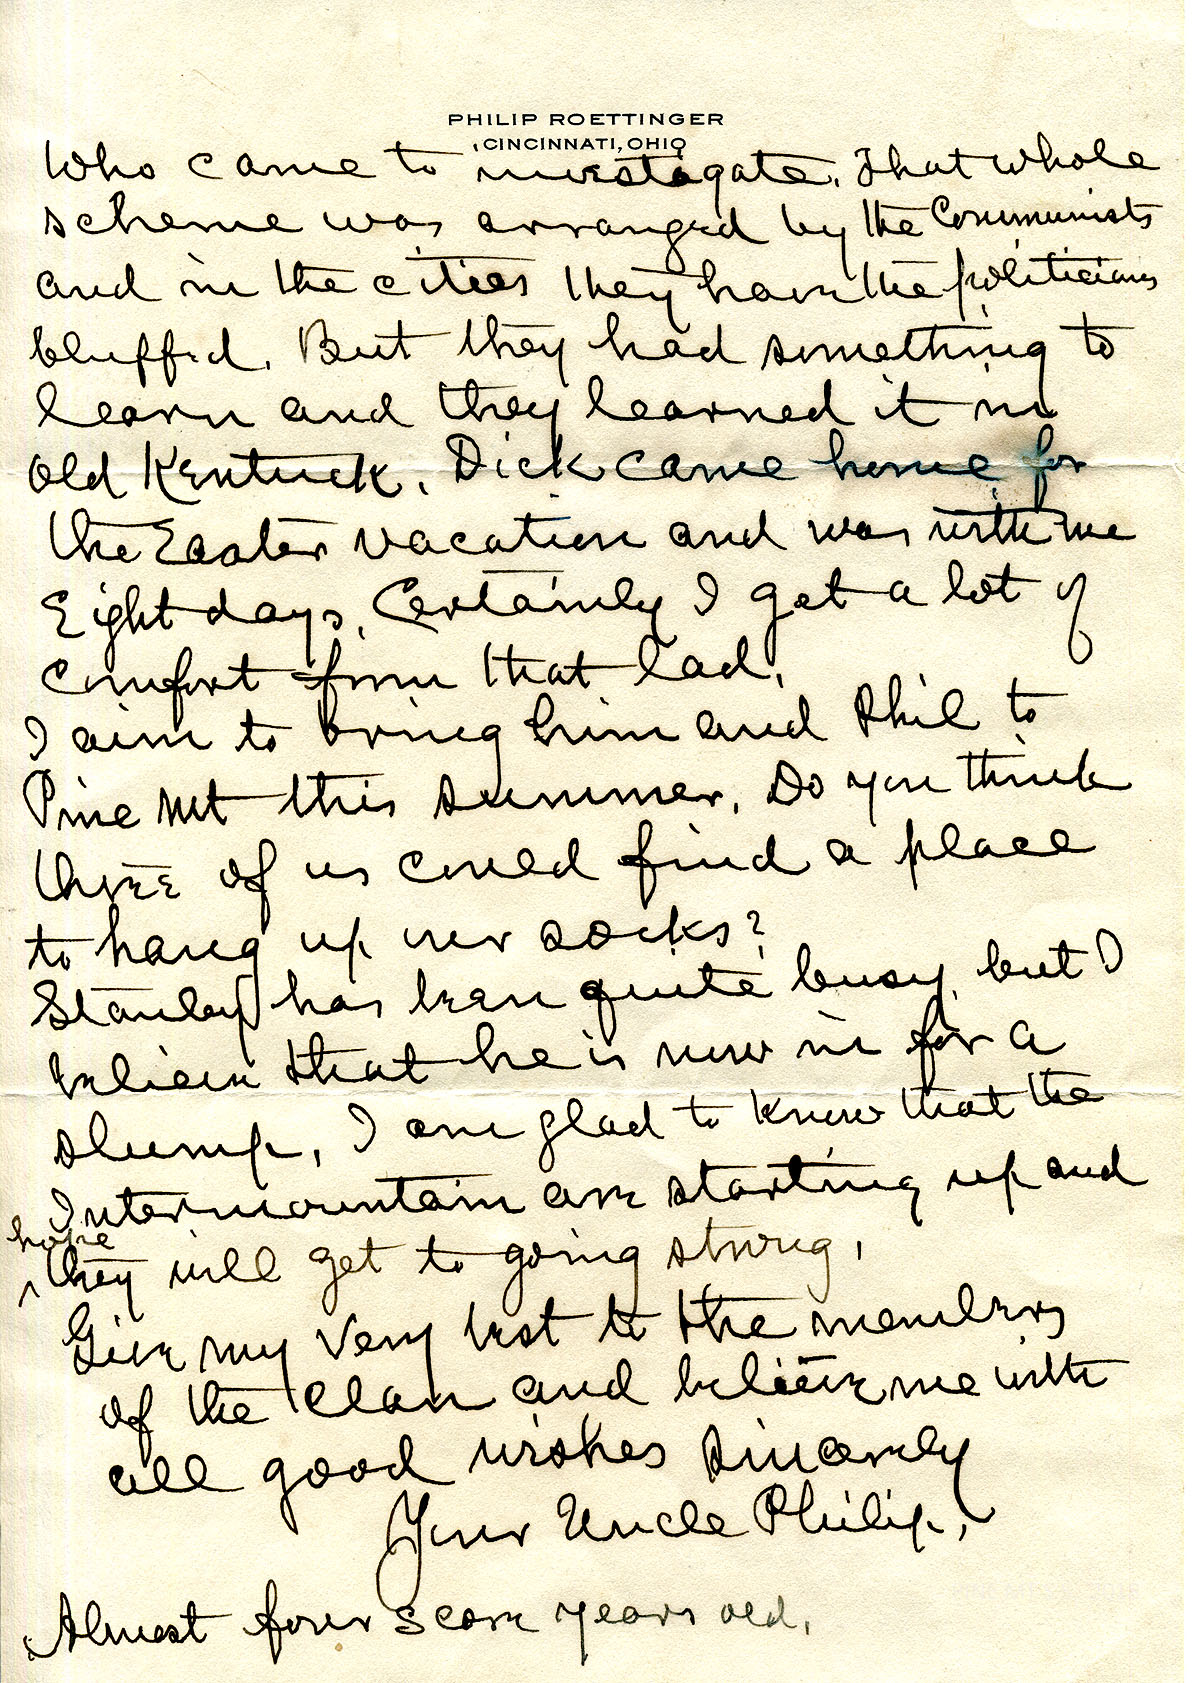 PHILIP ROETTINGER
CINCINNATI, OHIO
Who came to investigate. That whole
scheme was arranged by the Communists
and in the cities they have the politicians
bluffed. But they had something to
learn and they learned it in
old Kentuck. Dick came home for
the Easter vacation and was with me
Eight days. Certainly I get a lot of
comfort from that lad.
I aim to bring him and Phil to
Pine Mt this summer. Do you think
three of us could find a place
to hang up our socks?
Stanley has been quite busy, but I
believe that he is now in for a
slump. I am glad to know that the
Intermountain are starting up and
hope
^ they will get to going strong.
Give my very best to the members
of the Clan and believe me with
all good wishes sincerely
Your Uncle Philip.
Almost four score years old.